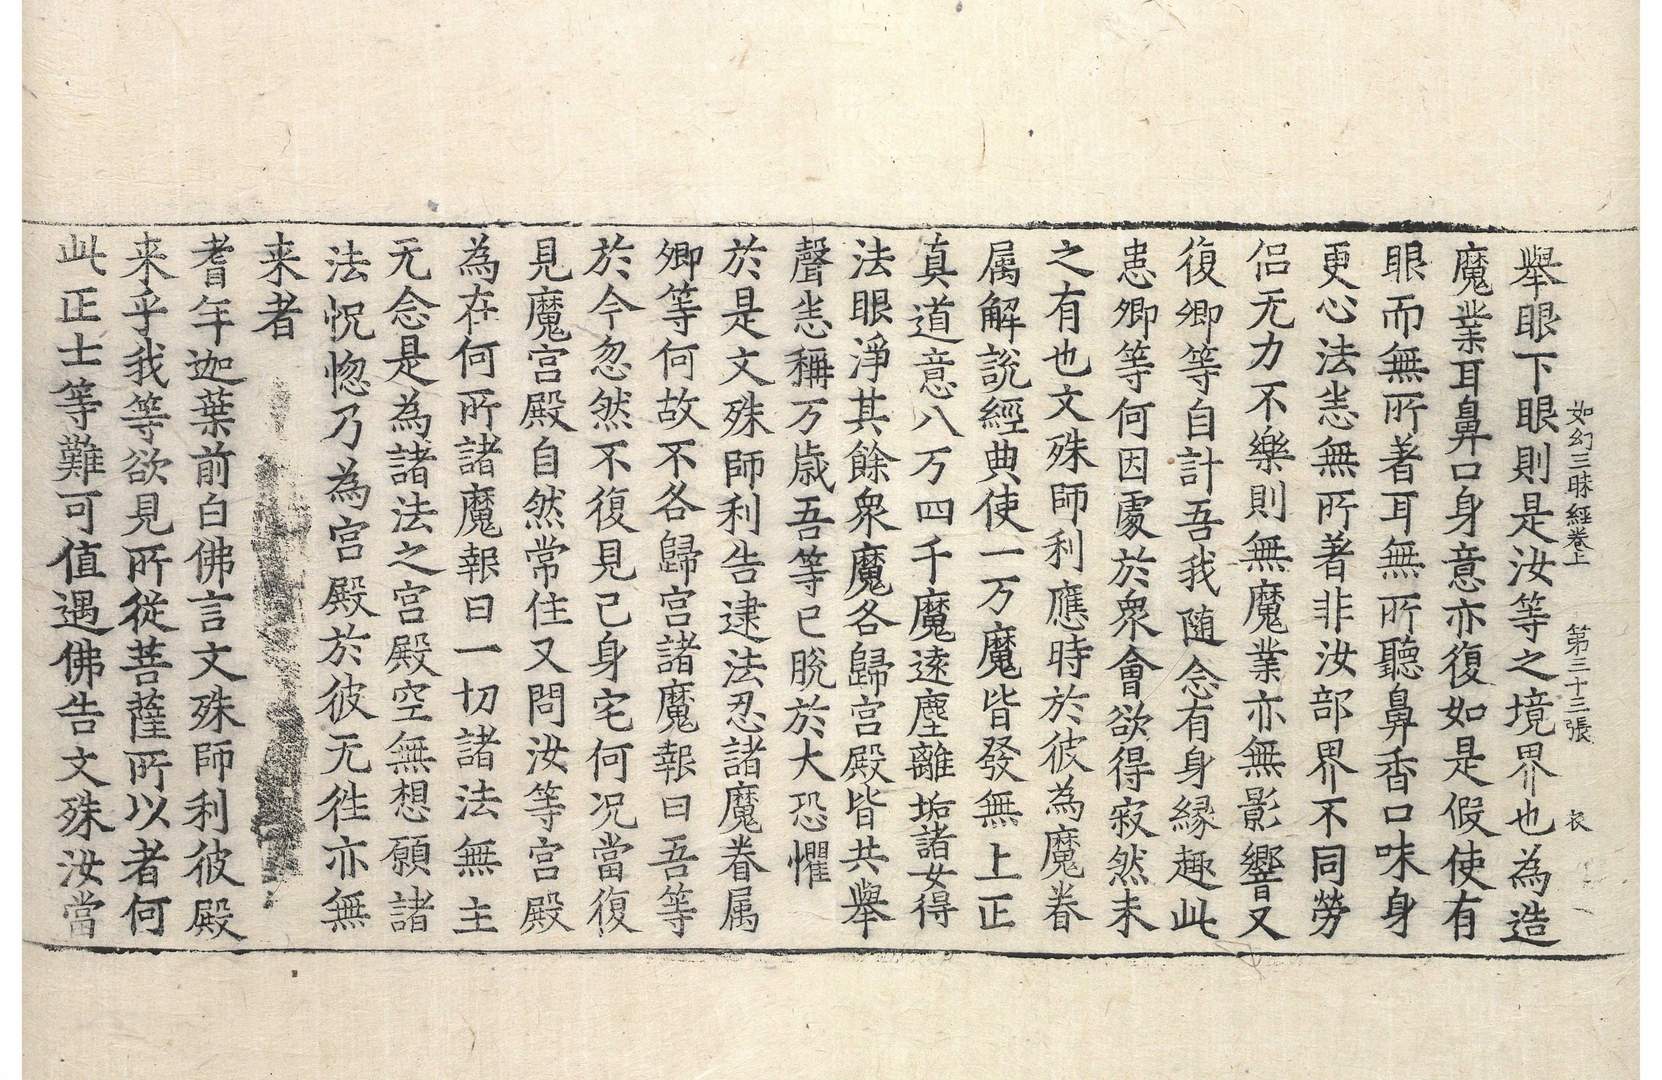 如幻三昧經卷上　第三十三張　衣
舉眼下眼則是汝等之境界也為造
魔業耳鼻口身意亦復如是假使有
眼而無所著耳無所聽鼻香口味身
更心法悉無所著非汝部界不同勞
侣无力不樂則無魔業亦無影響又
復卿等自計吾我随念有身縁趣此
恚卿等何因處於衆會欲得寂然未
之有也文殊師利應時於彼為魔眷
属解說經典使一万魔皆發無上正
真道意八万四千魔遠塵離垢諸女得
法眼淨其餘衆魔各歸宫殿皆共舉
聲悉稱万歳吾等已脫於大恐懼
於是文殊師利告逮法忍諸魔眷属
卿等何故不各歸宫諸魔報曰吾等
於今忽然不復見己身宅何况當復
見魔宫殿自然常住又問汝等宫殿
為在何所諸魔報曰一切諸法無主
无念是為諸法之宫殿空無想願諸
法怳惚乃為宫殿於彼无徃亦無
来者
耆年迦葉前白佛言文殊師利彼殿
来乎我等欲見所從菩薩所以者何
此正士等難可值遇佛告文殊汝當